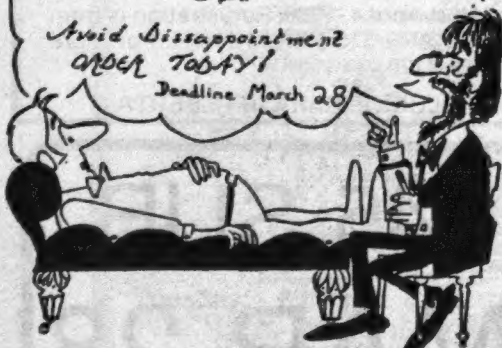 Avoid Dissappointment
ORDER TODAY!
Deadline March 28